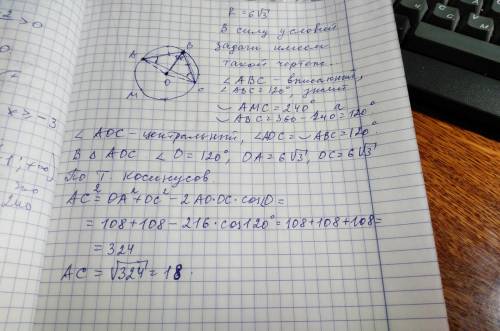 R = 6√3
В силу условой
задачи имеем
такой чертёж
∠ABC - вписанный,
∠ABC = 120°, значит
◡ AMC = 240°, а
◡ ABC = 360 - 240 = 120°
∠ AOC - центральный, ∠AOC = ◡ ABC = 120°
В Δ AOC ∠O = 120°, OA = 6√3, OC = 6√3
По Т. косинусов
AC² = OA² + OC² - 2AO·OC·cosO =
= 108 + 108 - 216·cos120° = 108 + 108 + 108 =
= 324
AC = √324 = 18.
A
B
O
C
M
> 0
x > -3